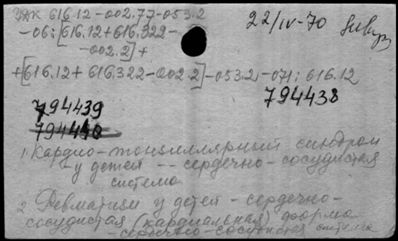 ЗАК 616.12-002.77-053.2
-06:[616.12+616.322-
-002.2]+
+[616.12+616.322-002.2]-053.2-071:616.12
22/IV-70
794439
794438
794440
1. Кардио-тонзиллярный синдром
у детей -- сердечно-сосудистая
система
2. Ревматизм у детей - сердечно-
сосудистая (кардиальная) форма
- сердечно-сосудистая система